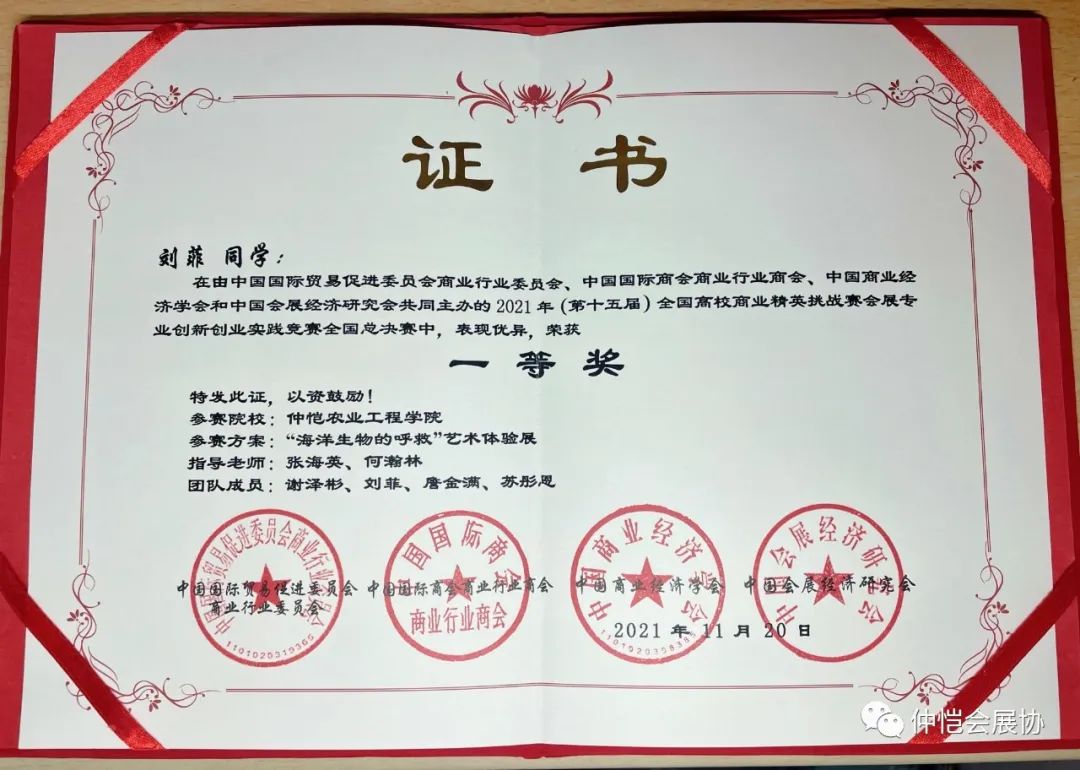 证 书
刘菲 同学：
在由中国国际贸易促进委员会商业行业委员会、中国国际商会商业行业商会、中国商业经
济学会和中国会展经济研究会共同主办的2021年（第十五届）全国高校商业精英挑战赛会展专
业创新创业实践竞赛全国总决赛中，表现优异，荣获
一 等 奖
特发此证，以资鼓励！
参赛院校：仲恺农业工程学院
参赛方案：“海洋生物的呼救”艺术体验展
指导老师：张海英、何瀚林
团队成员：谢泽彬、刘菲、唐金满、苏彤恩
中国国际贸易促进委员会
商业行业委员会
中国国际商会商业行业商会
中国商业经济学会
中国会展经济研究会
2021 年 11 月 20 日
中国国际贸易促进委员会商业行业委员会
中国国际商会
商业行业商会
中国商业经济学会
中国会展经济研究会
仲恺会展协